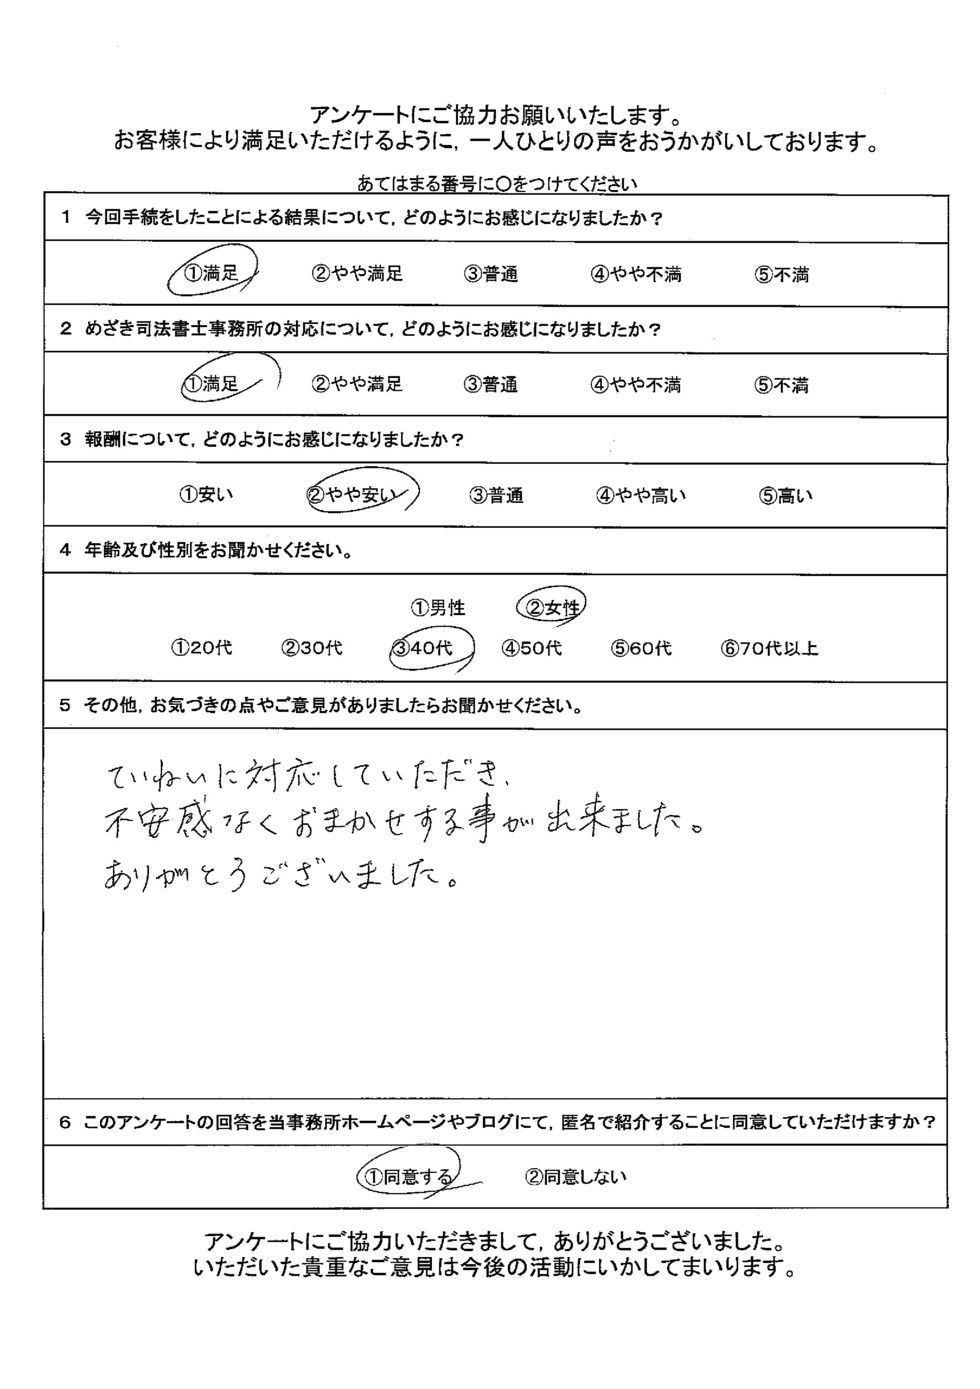 アンケートにご協力お願いいたします。
お客様により満足いただけるように，一人ひとりの声をおうかがいしております。
あてはまる番号に○をつけてください
1 今回手続をしたことによる結果について，どのようにお感じになりましたか？
①満足 ②やや満足 ③普通 ④やや不満 ⑤不満
2 めざき司法書士事務所の対応について，どのようにお感じになりましたか？
①満足 ②やや満足 ③普通 ④やや不満 ⑤不満
3 報酬について，どのようにお感じになりましたか？
①安い ②やや安い ③普通 ④やや高い ⑤高い
4 年齢及び性別をお聞かせください。
①男性 ②女性
①20代 ②30代 ③40代 ④50代 ⑤60代 ⑥70代以上
5 その他，お気づきの点やご意見がありましたらお聞かせください。
ていねいに対応していただき、
不安感なくおまかせする事が出来ました。
ありがとうございました。
6 このアンケートの回答を当事務所ホームページやブログにて，匿名で紹介することに同意していただけますか？
①同意する ②同意しない
アンケートにご協力いただきまして，ありがとうございました。
いただいた貴重なご意見は今後の活動にいかしてまいります。